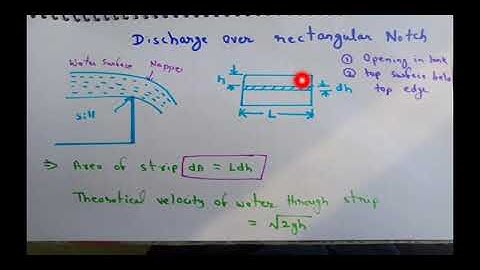 Discharge over rectangular Notch
water surface
Nappe
sill
h
dh
L
① Opening in tank
② top surface below
top edge
⇒ Area of strip dA = Ldh
Theoretical velocity of water through strip
= √2gh